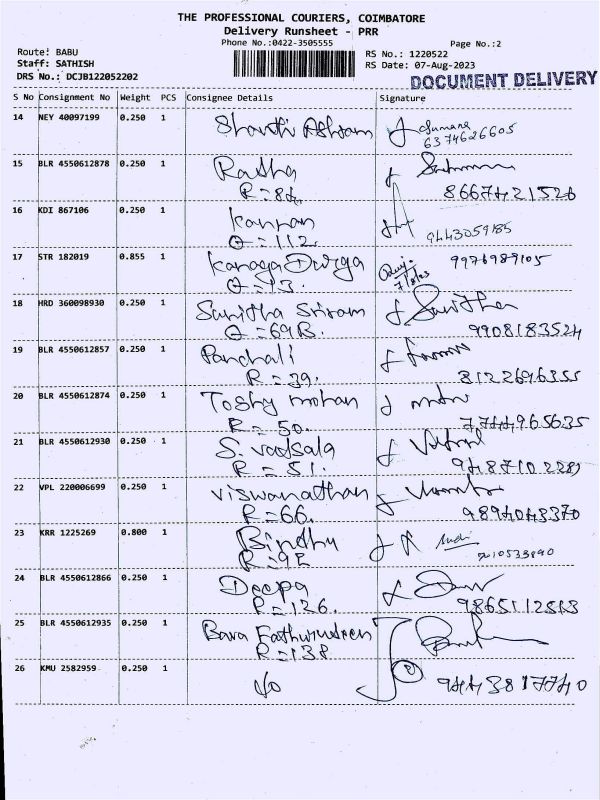 THE PROFESSIONAL COURIERS, COIMBATORE
Delivery Runsheet - PRR
Phone No.:0422-3505555
Page No.:2
Route: BABU
RS No.: 1220522
Staff: SATHISH
RS Date: 07-Aug-2023
DRS No.: DCJB122052202
DOCUMENT DELIVERY
S No Consignment No Weight PCS Consignee Details Signature
14 NEY 40097199 0.250 1 Shanthi Ashram
6374626605
15 BLR 4550612878 0.250 1 Radha
R=84 8667421526
16 KDI 867106 0.250 1 Kannan
Q=112 9443059185
17 STR 182019 0.855 1 Kanaga Durga 9976989105
Q=13. 7/8/23
18 HRD 360098930 0.250 1 Sunitha Sriram Sunitha
Q=69B. 9908183524
19 BLR 4550612857 0.250 1 Panchali
R=39. 8122696355
20 BLR 4550612874 0.250 1 Toshy mohan
R=50. 7744965635
21 BLR 4550612930 0.250 1 S. vadsala
R=51.
22 VPL 220006699 0.250 1 Viswanathan
R=66. 9894043370
23 KRR 1225269 0.800 1 Bindhu
24 BLR 4550612866 0.250 1 Deepa
R=126.
25 BLR 4550612935 0.250 1
R=138
26 KMU 2582959 0.250 1 9443817740